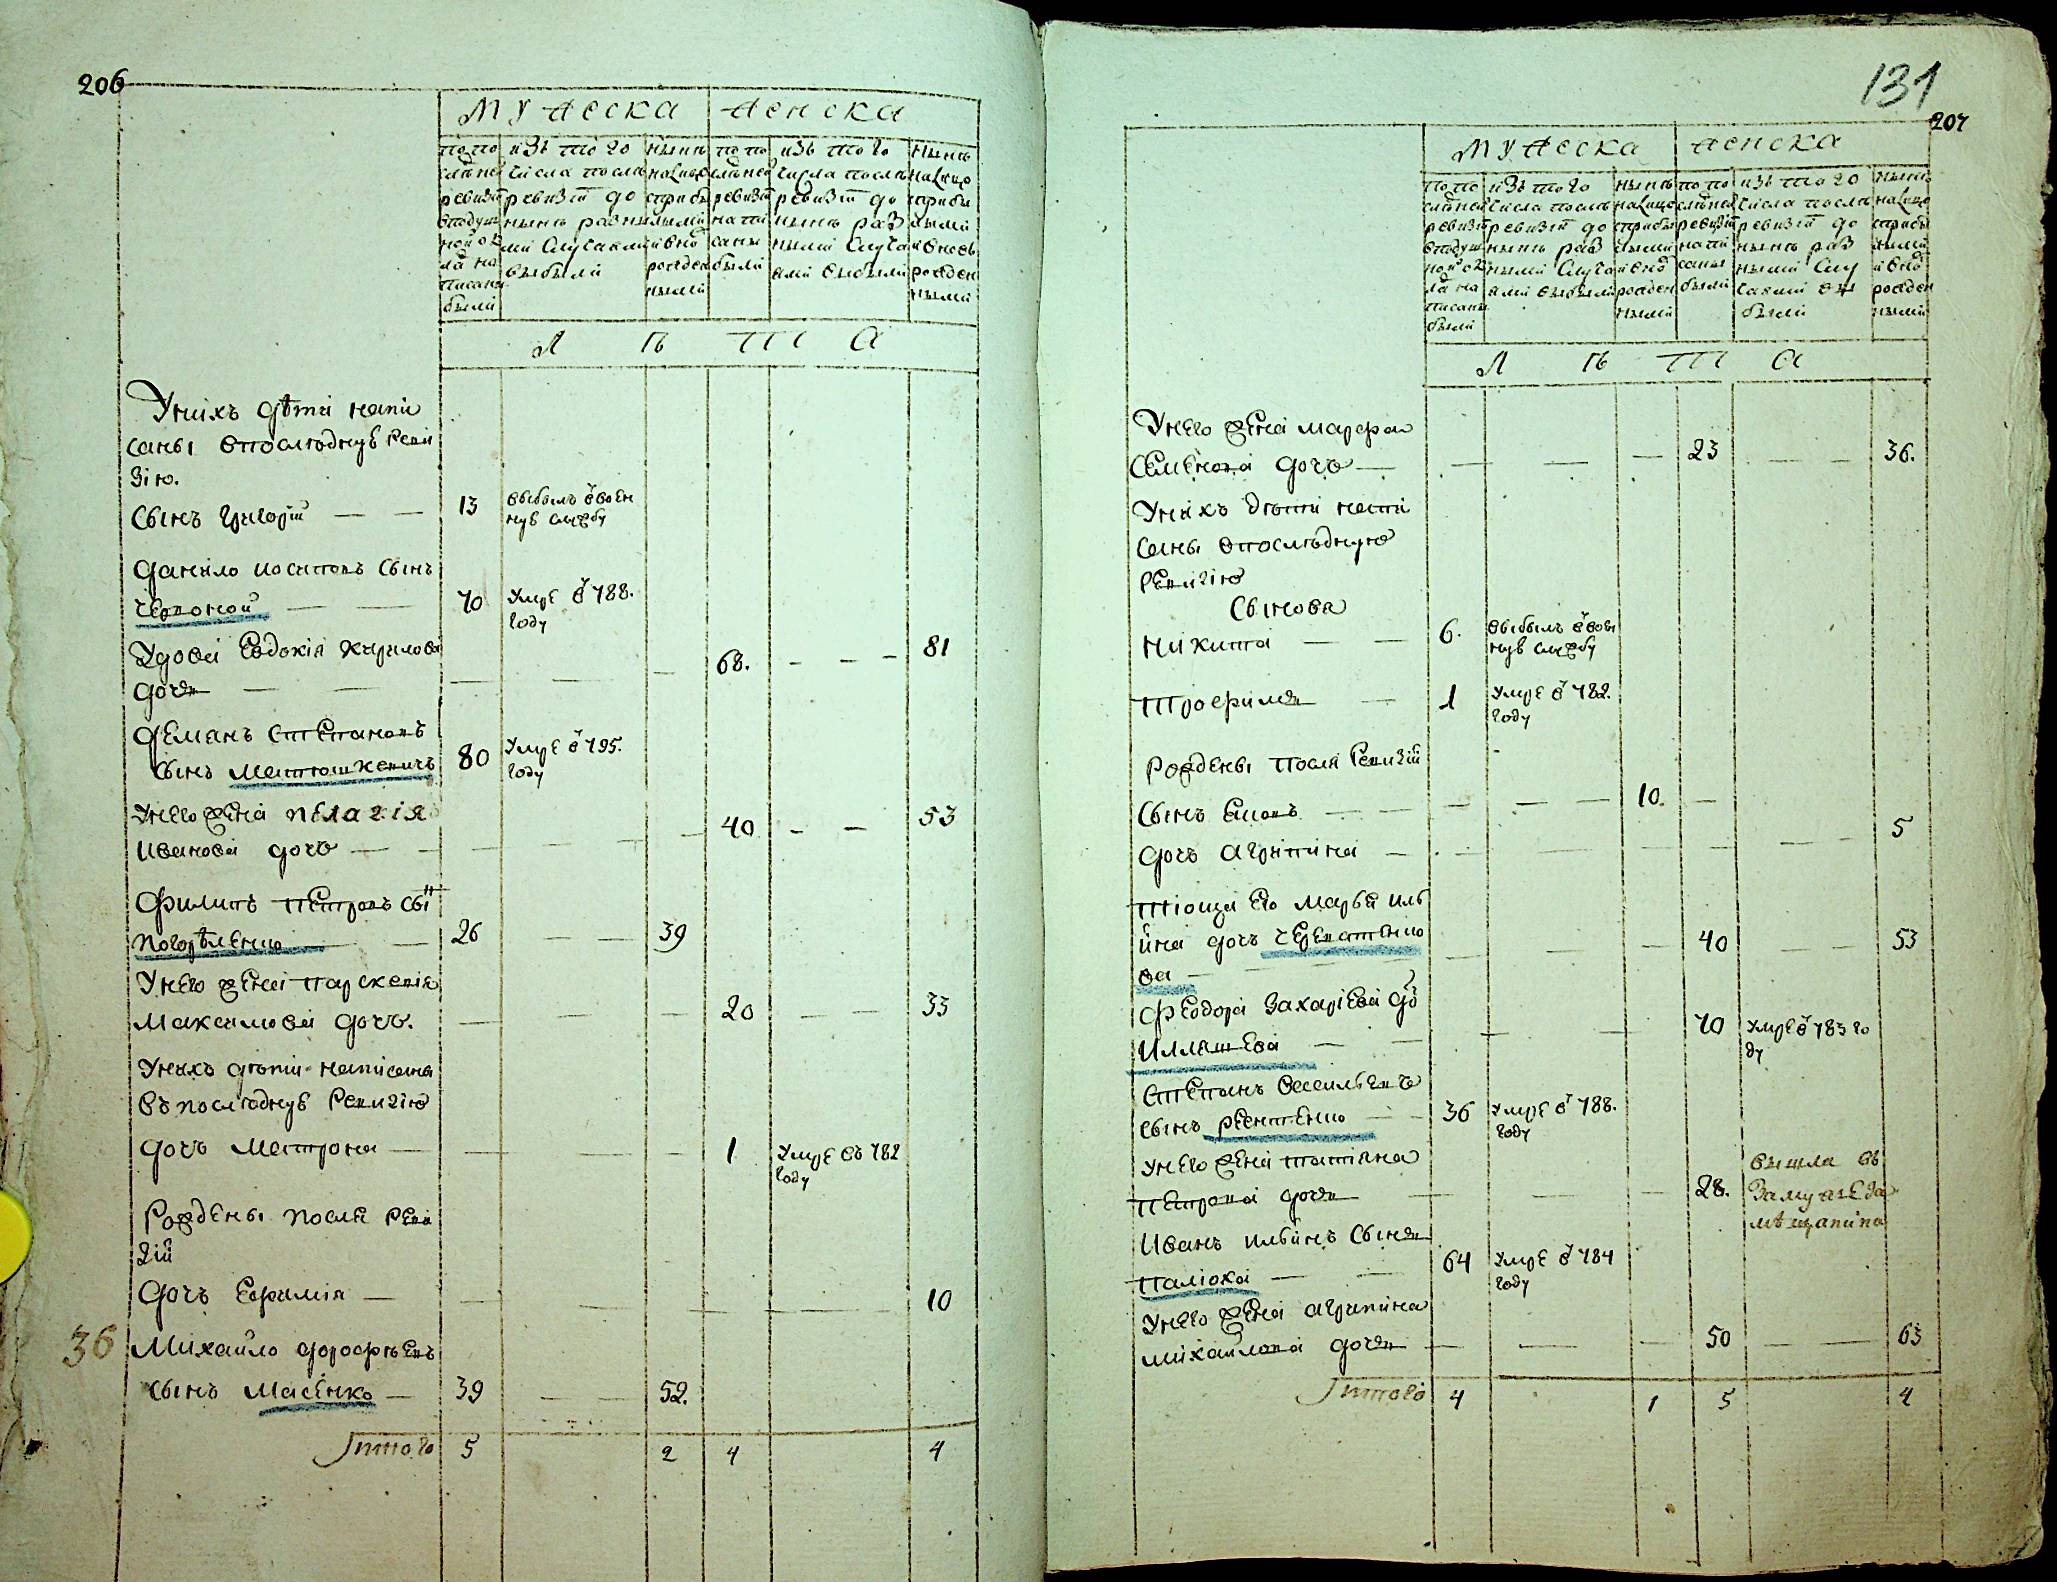 206
МУЖЕСКА
ЖЕНСКА
по по
слѣней
ревизіи
в подуш
ной ок
ла на
писаны
были
изъ того
числа послѣ
ревизіи до
нынѣ разны
ми случаями
выбыли
нынѣ
на лицо
с прибы
лыми
и вно
рожден
ными
по по
слѣней
ревизіи
напи
саны
были
изъ того
числа послѣ
ревизіи до
нынѣ раз
ными случа
ями выбыли
нынѣ
на лицо
с прибы
лыми
и вновь
рожден
ными
Л Ѣ Т А
У нихъ дѣти напи
саны в послѣднув реви
зію.
Сынъ Григоріи — — 13 выбылъ в воен
нув службу
Данило Иосиповъ сынъ
Червоной — — 70 Умре в 788.
году
Удова Евдокія Кирилова
дочь — — — — — 68. - - - 81
Деманъ Степановъ
сынъ Матюшкевичъ 80 Умре в 795.
году
У него жена Пелагія
Иванова дочь — — — — — 40 - — 53
Филипъ Петровъ сын
Погорѣленко — — 26 — — 39
У него жена Парскевія
Максимова дочь. — — — 20 — — 33
У нихъ дѣти написаны
въ послѣднув ревизію
дочь Матрона — — — — 1 Умре въ 782
году
Рождены после реви
зіи
Дочь Ефимія — — — — — — — 10
36 Михайло Дорофѣевъ
сынъ Масенко — 39 — — 52.
Итого 5 2 4 4
131
207
МУЖЕСКА
ЖЕНСКА
по по
слѣней
ревизіи
в подуш
ной ок
ла на
писаны
были
изъ того
числа послѣ
ревизіи до
нынѣ раз
ными случа
ями выбыли
нынѣ
на лицо
с прибы
лыми
и вно
рожден
ными
по по
слѣней
ревизіи
напи
саны
были
изъ того
числа послѣ
ревизіи до
нынѣ раз
ными слу
чаями вы
были
нынѣ
на лицо
с прибы
лыми
и вно
рожден
ными
Л Ѣ Т А
У него жена Марфа
Семенова дочь — — — — 23 — — 36.
У нихъ дѣти напи
саны в послѣдную
ревизію
Сынова
Никита — — 6. выбылъ в воен
нув службу
Трофимъ — 1 Умре в 782.
году
Рождены после ревизіи
Сынъ — — — — — 10. —
Дочь Агрипина — — — — — — — 5
Тіоща его Марья Иль
ина дочь
ва — — — — 40 — — 53
Феодора Захаріева до
Илляшева — — — — 70 Умре в 783 го
ду
Степанъ Васильевъ
сынъ — — 36 Умре в 788.
году
У него жена Татіана
Петрова дочь — — — 28. вышла въ
замужеза
мѣщанина
Иванъ Ильинъ сынъ
Паліоха — — 64 Умре в 784
году
У него жена Агрипина
Михайлова дочь — — — 50 — — 63
Итого 4 1 5 4